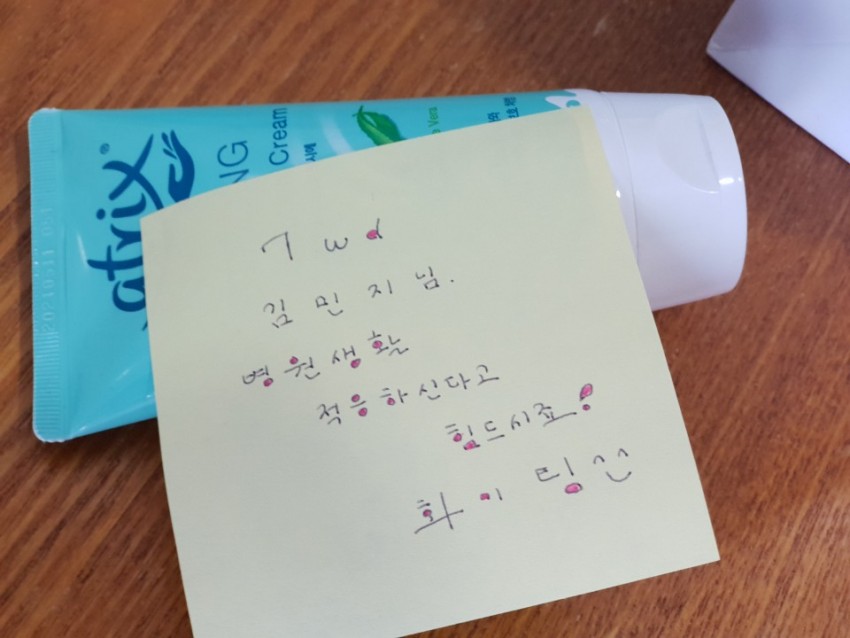 atrix®
NG
Cream
Vera
20210311
7 wd
김민지님.
병원생활
적응하신다고
힘드시죠!
화이팅^^